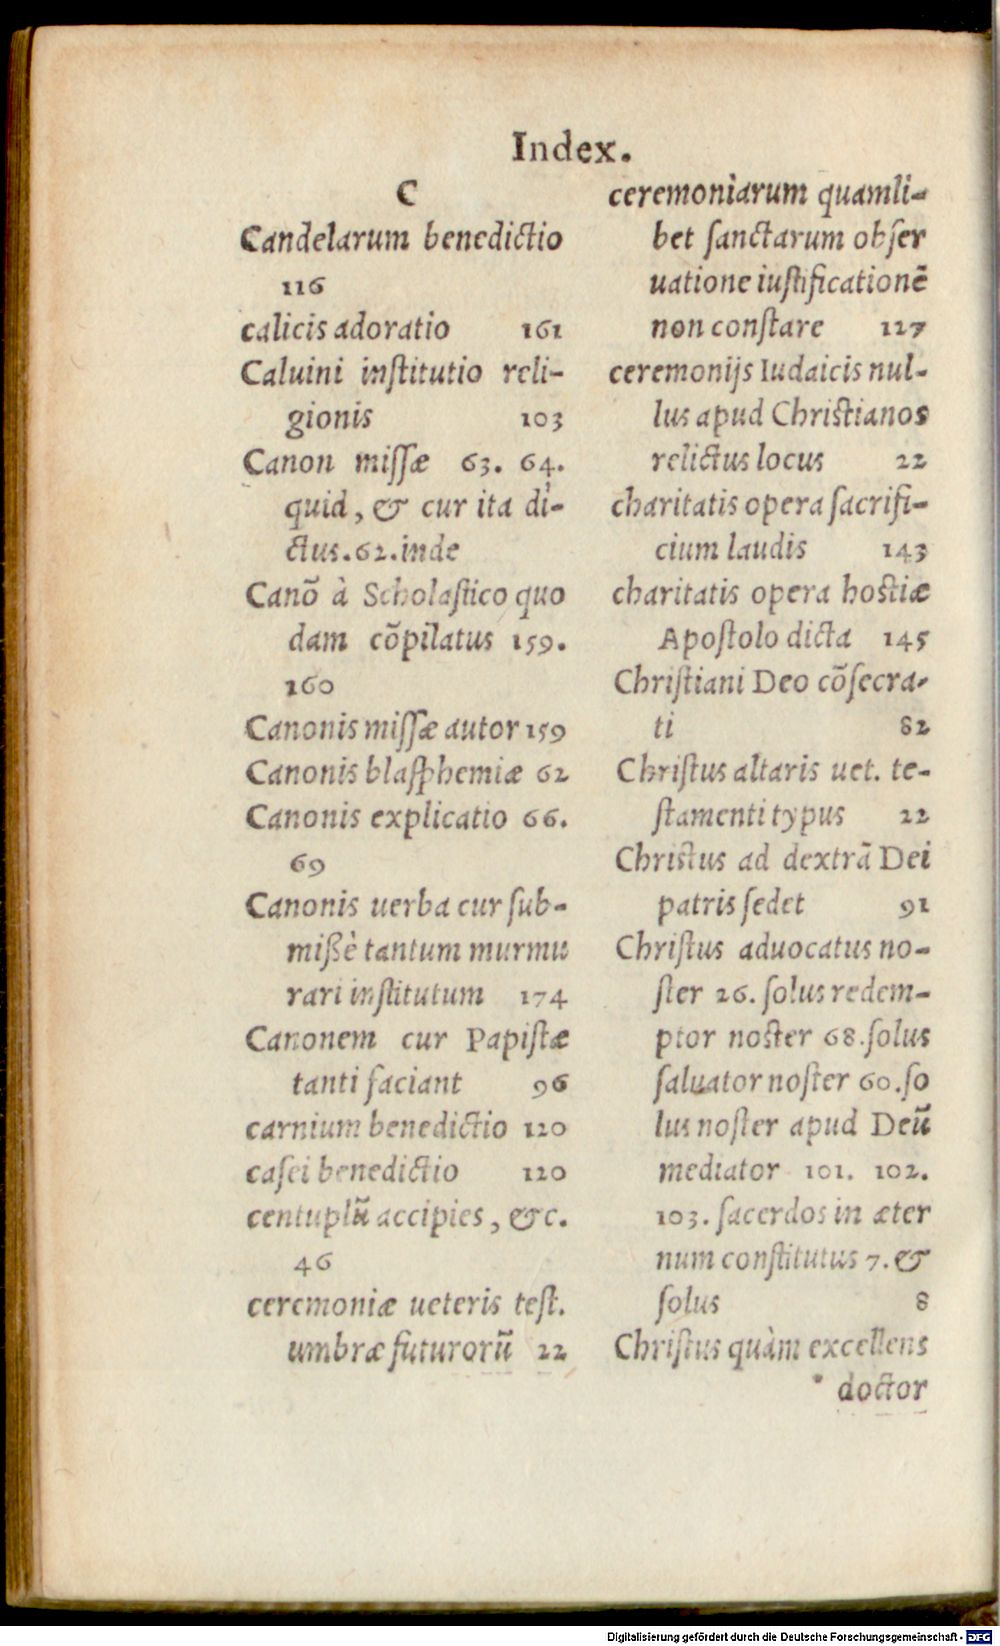 Index.
C
Candelarum benedictio
116
calicis adoratio 161
Caluini institutio reli-
gionis 103
Canon missæ 63. 64.
quid, & cur ita di-
ctus. 62. inde
Canõ à Scholastico quo
dam cõpilatus 159.
160
Canonis missæ autor 159
Canonis blasphemiæ 62
Canonis explicatio 66.
69
Canonis uerba cur sub-
mißè tantum murmu
rari institutum 174
Canonem cur Papistæ
tanti faciant 96
carnium benedictio 120
casei benedictio 120
centuplũ accipies, &c.
46
ceremoniæ ueteris test.
umbræ futurorũ 22
ceremoniarum quamli-
bet sanctarum obser
uatione iustificationẽ
non constare 127
ceremonijs Iudaicis nul-
lus apud Christianos
relictus locus 22
charitatis opera sacrifi-
cium laudis 143
charitatis opera hostiæ
Apostolo dicta 145
Christiani Deo cõsecra-
ti 82
Christus altaris uet. te-
stamenti typus 22
Christus ad dextrã Dei
patris sedet 91
Christus aduocatus no-
ster 26. solus redem-
ptor noster 68. solus
saluator noster 60. so
lus noster apud Deũ
mediator 101. 102.
103. sacerdos in æter
num constitutus 7. &
solus 8
Christus quàm excellens
doctor
Digitalisierung gefördert durch die Deutsche Forschungsgemeinschaft - DFG